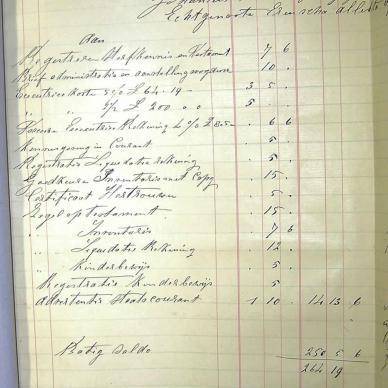 Echtgenoote
Aan
Registreren Sterfkennis en Testament 7 6
Brief administratie en aanstelling voogden 10 .
Executeurskosten 5% £ 64 . 19 - 3 5 .
" " 2½ £ 200 . 0 . 0 5 .
Executeurs Rekening £ 6 . 6
Kennisgeving in Courant . 5 .
Registratie Liquidatie rekening . 5 .
Goedkeuren Inventaris met Copy . 15 .
Certificaat Hertrouwen . 5 .
Zegel op Testament . 15 .
" Inventaris 7 6
" Liquidatie Rekening . 12 .
" Kinderbewijs . 5 .
Registratie Kinderbewijs . 5 .
Advertentie Staatscourant 1 10 . 14 13 6
Batig Saldo 250 5 6
264 19